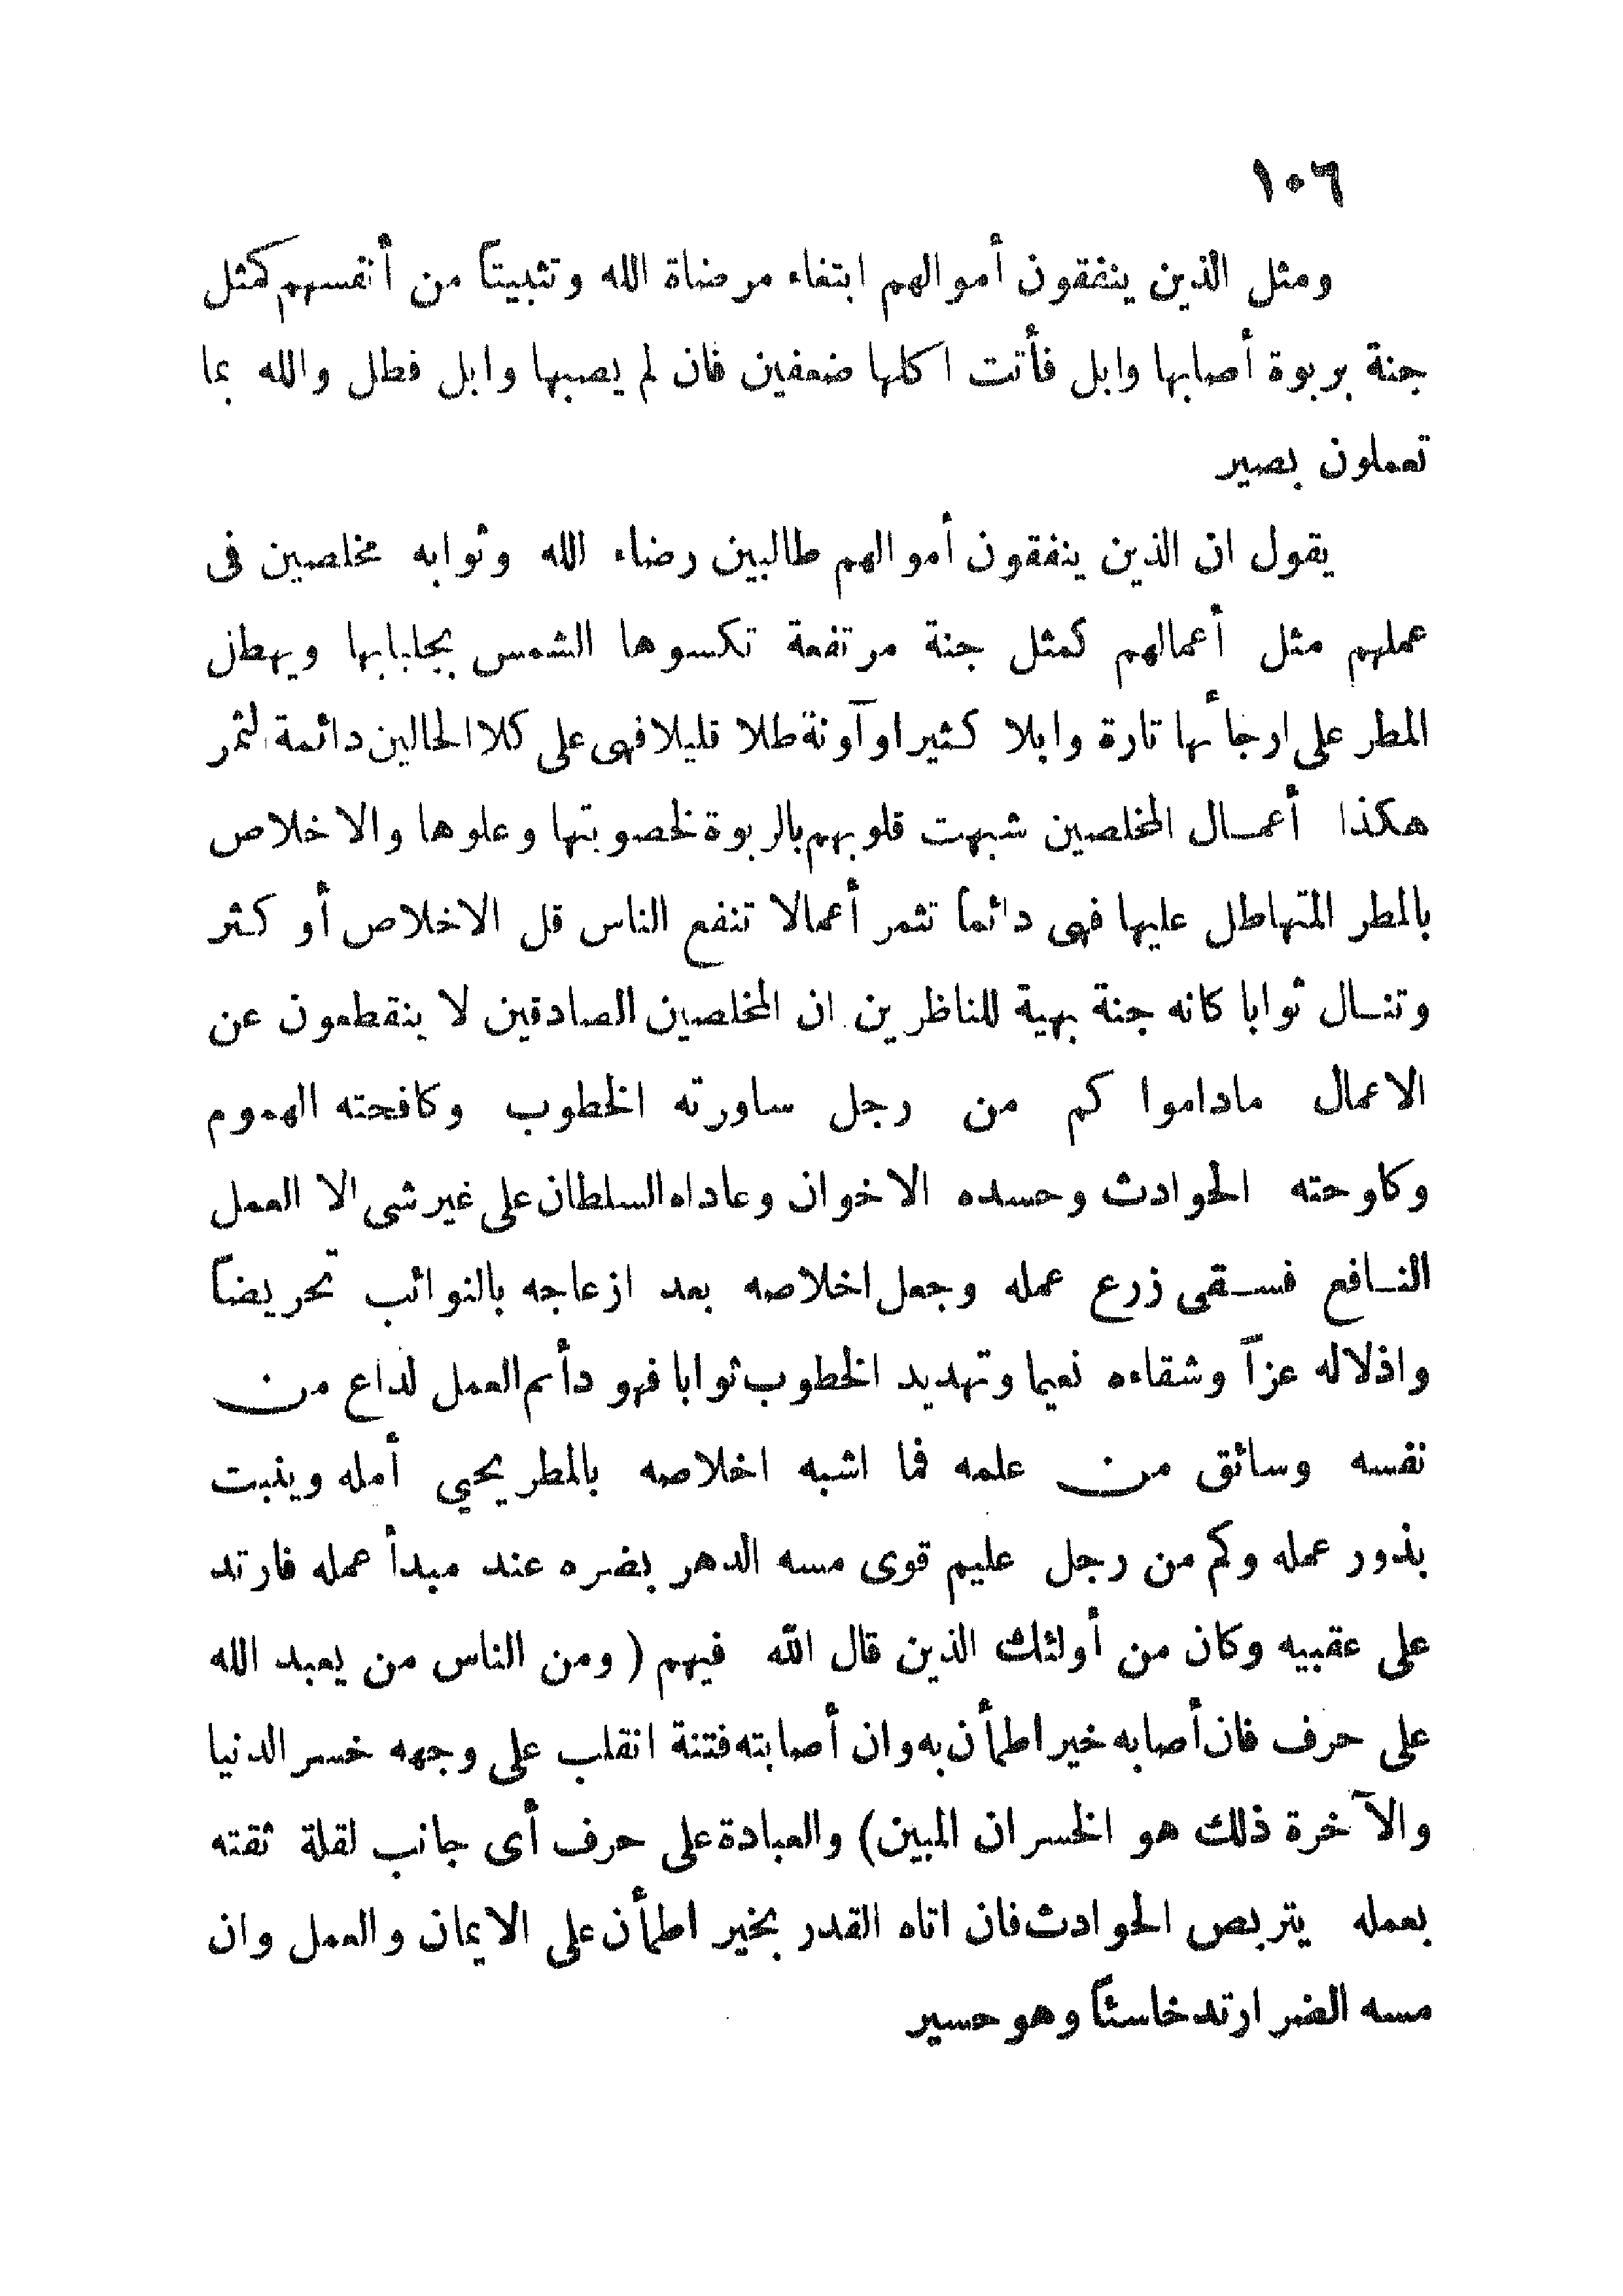 ١٠٦
ومثل الذين ينفقون أموالهم ابتغاء مرضاة الله وتثبيتاً من أنفسهم كمثل
جنة بربوة أصابها وابل فأتت اكلها ضعفين فان لم يصبها وابل فطل والله بما
تعملون بصير
يقول ان الذين ينفقون أموالهم طالبين رضاء الله وثوابه مخلصين فى
عملهم مثل أعمالهم كمثل جنة مرتفعة تكسوها الشمس بجلبابها ويهطل
المطر على ارجائها تارة وابلا كثيرا وآونة طلا قليلا فهى على كلا الحالين دائمة الثمر
هكذا أعمال المخلصين شبهت قلوبهم بالربوة لخصوبتها وعلوها والاخلاص
بالمطر المتهاطل عليها فهى دائماً تثمر أعمالا تنفع الناس قل الاخلاص أو كثر
وتنال ثوابا كانه جنة بهية للناظرين ان المخلصين الصادقين لا ينقطعون عن
الاعمال ماداموا كم من رجل ساورته الخطوب وكافحته الهموم
وكاوحته الحوادث وحسده الاخوان وعاداه السلطان على غير شى الا العمل
النافع فسقى زرع عمله وجعل اخلاصه بعد ازعاجه بالنوائب تحريضاً
واذلاله عزاً وشقاءه نعيما وتهديد الخطوب ثوابا فهو دائم العمل لداع من
نفسه وسائق من علمه فما اشبه اخلاصه بالمطر يحيي أمله وينبت
بذور عمله وكم من رجل عليم قوى مسه الدهر بضره عند مبدأ عمله فارتد
على عقبيه وكان من أولئك الذين قال الله فيهم (ومن الناس من يعبد الله
على حرف فان أصابه خير اطمأن به وان أصابته فتنة انقلب على وجهه خسر الدنيا
والآخرة ذلك هو الخسران المبين) والعبادة على حرف أى جانب لقلة ثقته
بعمله يتربص الحوادث فان اتاه القدر بخير اطمأن على الايمان والعمل وان
مسه الضر ارتد خاسئاً وهو حسير